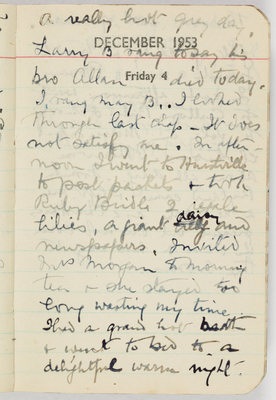 a really hot grey day.
Larry B rang to say his
DECEMBER 1953
bro Allan died today.
Friday 4
I rang May B.. I looked
through last chap - It does
not satisfy me. In after
noon I went to Hurstville
to post packets & took
Ruby Bridle 2
lilies, a giant daisy and
newspapers. Invited
Mrs Morgan to morning
tea & she stayed so
long wasting my time.
I had a grand hot bath
& went to bed to a
delightful warm night.